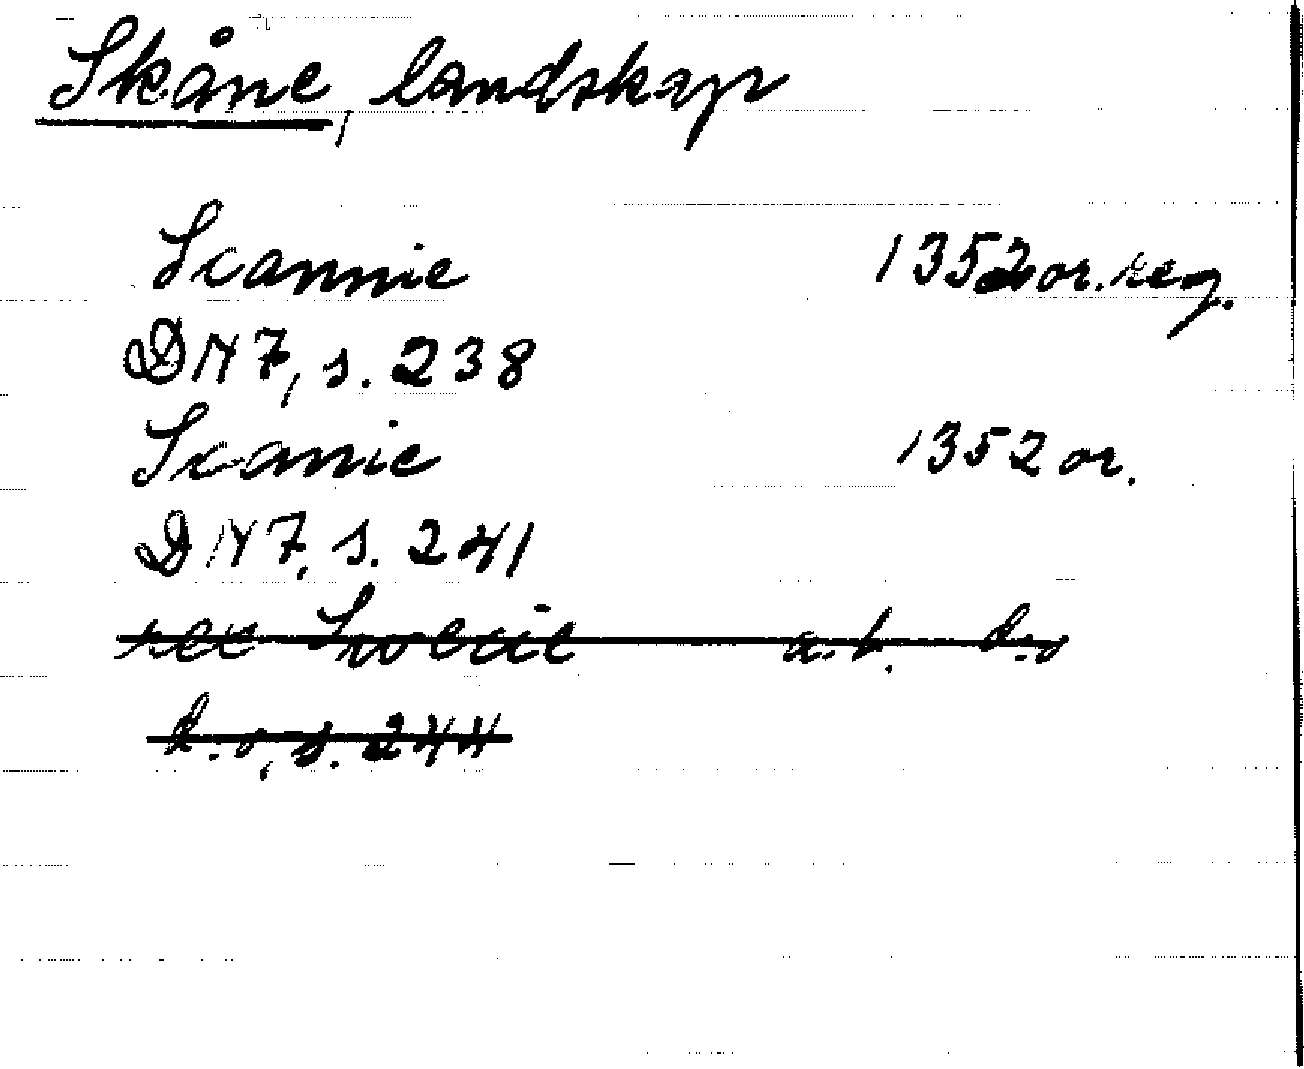 Skåne, landskap
Scannie 1352 or. reg.
DN 7, s. 238
Scanie 1352 or.
DN 7, s. 241
rex Swecie a.b. d:o
d:o, s. 244